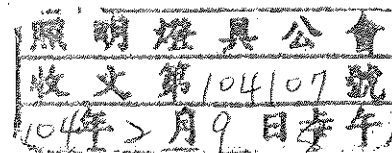 照明燈具公會
收文第104107號
104年2月9日 午